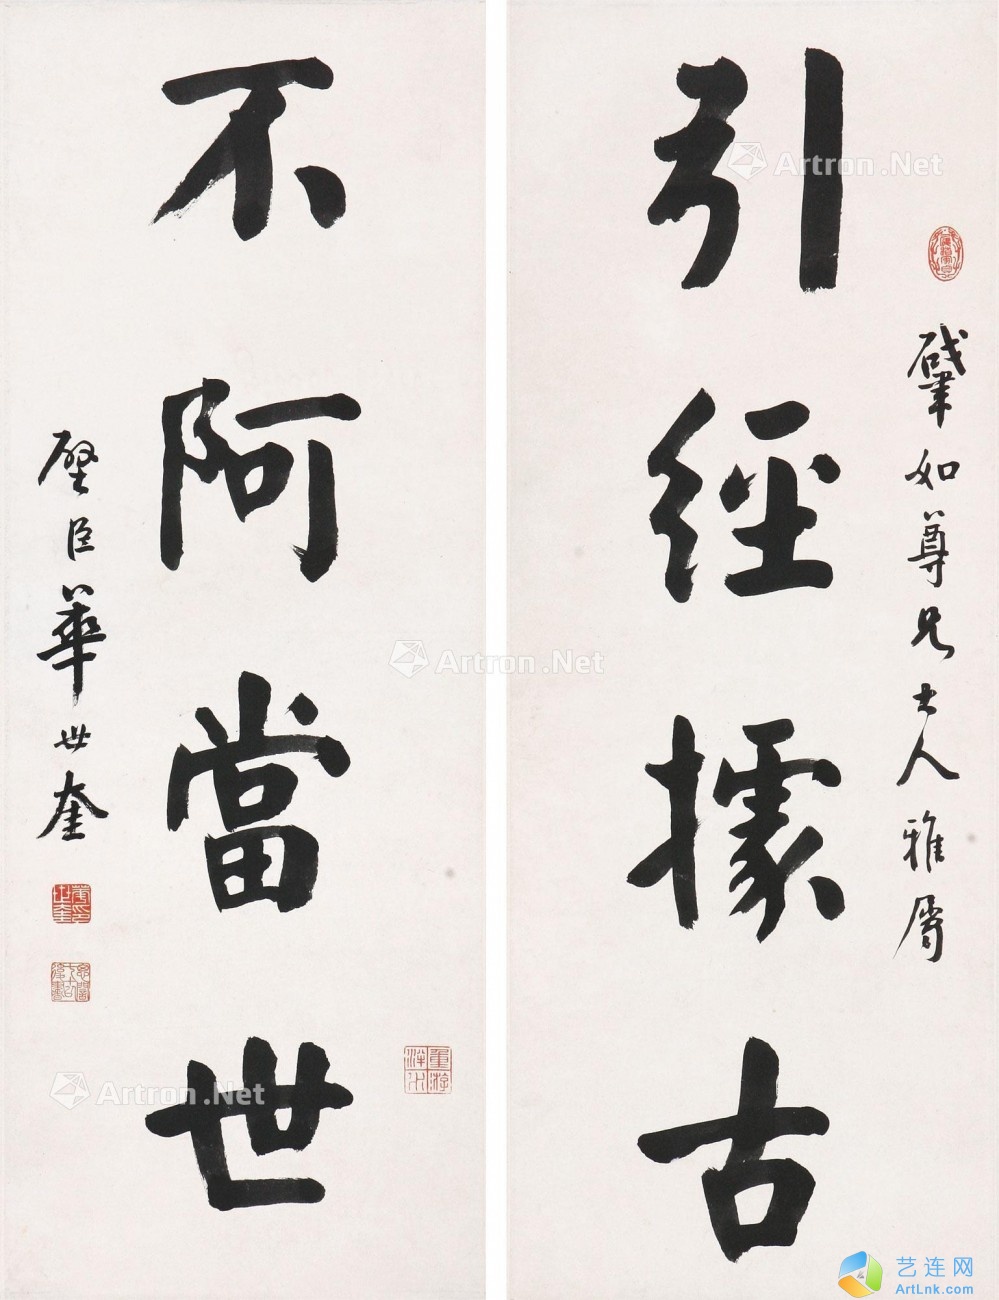 引經據古
肇如尊兄大人雅屬
不阿當世
壁臣華世奎
重游泮水
Artron.Net
Artron.Net
Artron.Net
艺连网
ArtLnk.com